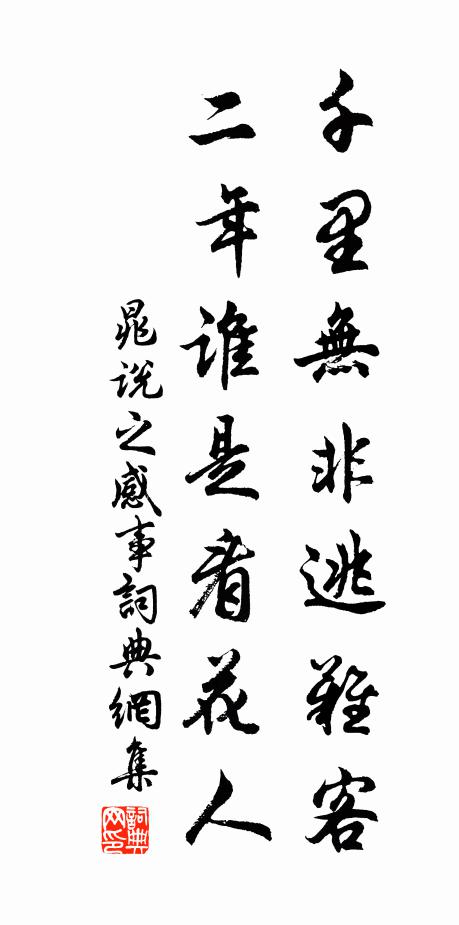 千里無非逃難客
二年誰是看花人
晁說之感事詞典網集
詞典网印